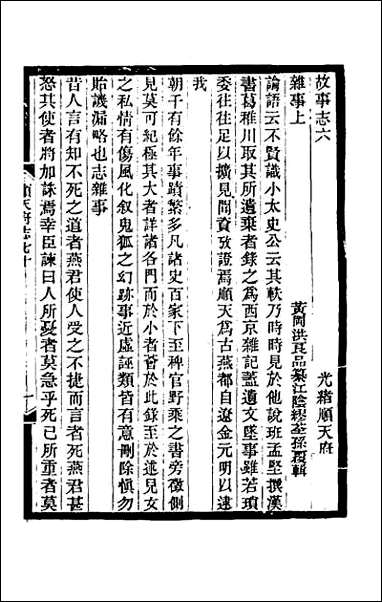 故事志六
光緒順天府
雜事上
黃岡洪良品纂江陰繆荃孫覆輯
論語云不賢識小太史公云其軼乃時時見於他說班孟堅撰漢
書葛稚川取其所遺棄者錄之爲西京雜記蓋遺文墜事雖若瑣
委往往足以擴見聞資攷證焉順天爲古燕都自遼金元明以逮
我
朝千有餘年事蹟繁多凡諸史百家下至稗官野乘之書旁徵側
見莫可紀極其大者詳諸各門而於小者會於此錄至於述兒女
之私情有傷風化叙鬼狐之幻跡事近虛誣類皆有意刪除愼勿
貽譏漏略也志雜事
昔人言有知不死之道者燕君使人受之不捷而言者死燕君甚
怒其使者將加誅焉幸臣諫曰人所憂者莫急乎死己所重者莫
順天府志七十